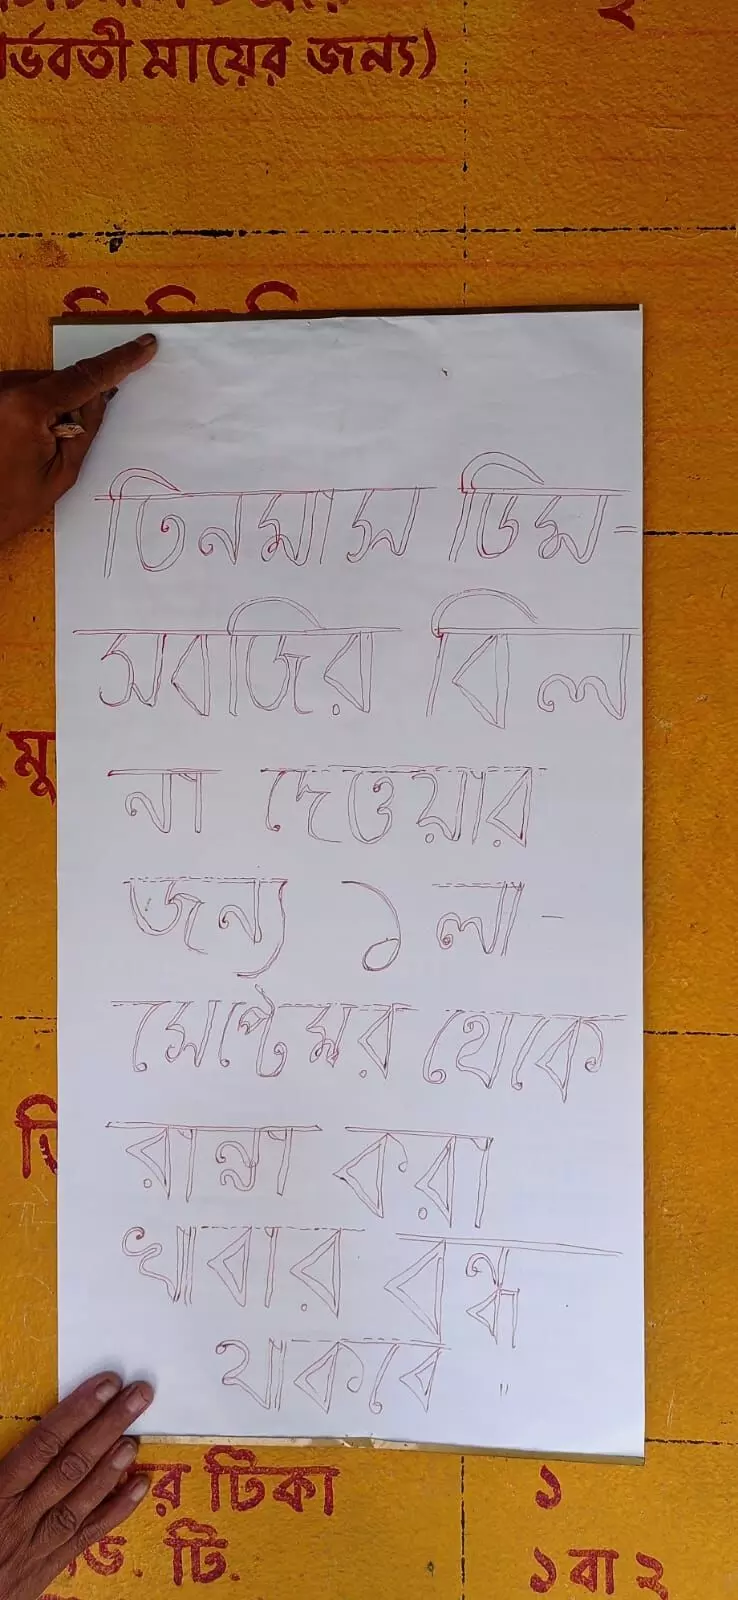 র্ভবতী মায়ের জন্য)
তিনমাস ডিম-
সবজির বিল
না দেওয়ার
জন্য ১লা-
সেপ্টেম্বর থেকে
রান্না করা
খাবার বন্ধ
থাকবে॥
র টিকা ১
ডি. টি. ১ বা ২